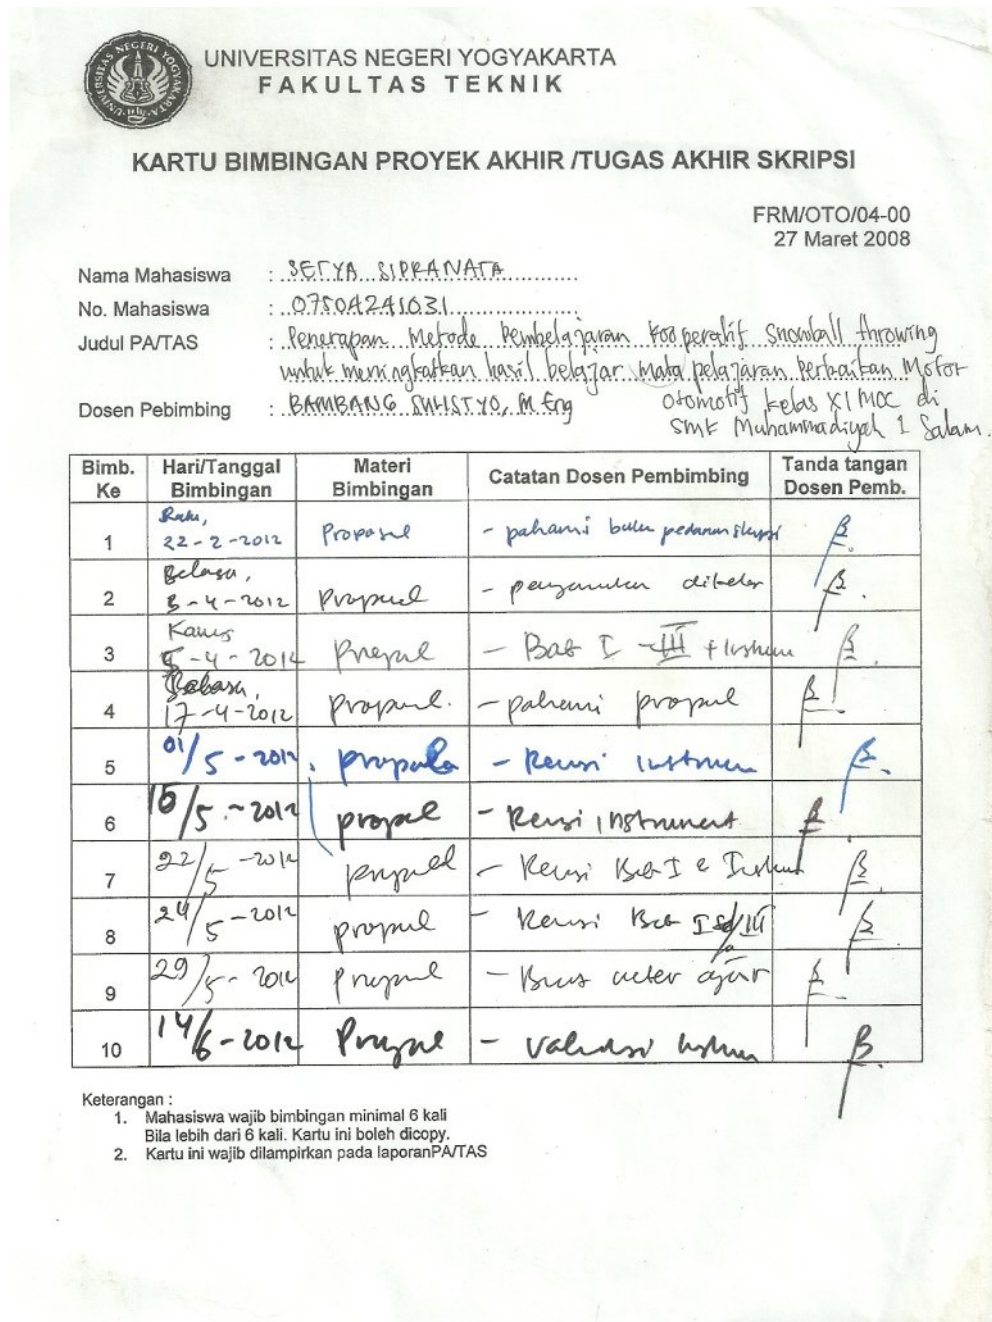 UNIVERSITAS NEGERI YOGYAKARTA
FAKULTAS TEKNIK
KARTU BIMBINGAN PROYEK AKHIR /TUGAS AKHIR SKRIPSI
FRM/OTO/04-00
27 Maret 2008
Nama Mahasiswa : SETYA SIPRANATA
No. Mahasiswa : 07504241031
Judul PA/TAS : Penerapan Metode Pembelajaran Kooperatif Snowball throwing
untuk meningkatkan hasil belajar Mata pelajaran Perbaikan Motor
Otomotif kelas XI MOC di
SMK Muhammadiyah 1 Salam.
Dosen Pebimbing : BAMBANG SULISTYO, M.Eng
Bimb. Ke Hari/Tanggal Bimbingan Materi Bimbingan Catatan Dosen Pembimbing Tanda tangan Dosen Pemb.
1 Rabu, 22-2-2012 Proposal - pahami buku pedoman skripsi
2 Selasa, 3-4-2012 proposal
3 Kamis 5-4-2012 proposal - Bab I - III + Instrumen
4 17-4-2012 proposal. - pahami proposal
5 01/5-2012 proposal - Revisi instrumen
6 /5-2012 proposal - Revisi instrument
7 22/5-2012 proposal - Revisi Bab I
8 24/5-2012 proposal - Revisi Bab I sd III
9 29/5-2012 proposal
10 14/6-2012 proposal - Validasi Instrumen
Keterangan :
1. Mahasiswa wajib bimbingan minimal 6 kali
Bila lebih dari 6 kali. Kartu ini boleh dicopy.
2. Kartu ini wajib dilampirkan pada laporanPA/TAS